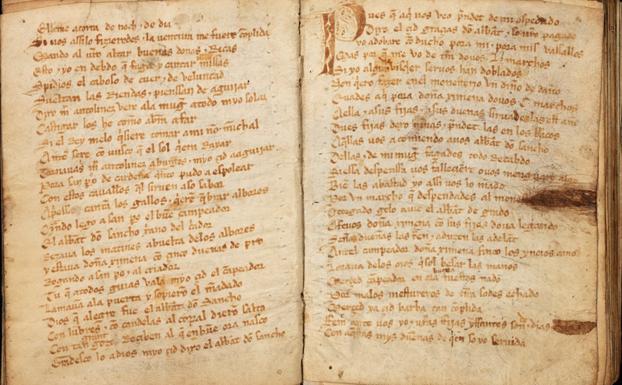 El me acorra de noch & de dia
Si uos assi lo fizieredes & la uentura me fuere cōplida
Mando al uro altar buenas donas & Ricas
Esto & yo en debdo q̄ faga y cantar mill missas
Spidios el caboso de cuer & de veluntad
Sueltan las Riendas & pienssan de aguijar
Dixo mȳ antolinez vere ala mugr̄ atodo myo solaz
Castigar los he como abrā afar
Si el Rey melo q̄siere tomar ami nō minchal
Antes sere cōuusco q̄ el sol q̄era Rayar
Tornauas mȳ antolinez aburgos & myo çid aaguijar
Pora san p̄o de cardena q̄nto pudo a espolear
Con estos cauallos q̄l siruen aso sabor
Apriessa cantā los gallos & q̄erē q̄brar albores
Q̄ndo lego a san po el buē campeador
El abbat dō sancho x̄ano del criador
Rezaua los matines abuelta delos albores
y estaua doña ximena cō cinco dueñas de pro
Rogando a san po & al criador
Tu q̄ atodos guias val amyo çid el campeador
Lamauā ala puerta y sopierō el mādado
Dios q̄ alegre fue el abbat dō sancho
Con lūbres & cō candelas al corral dierō salto
Con tan grant gozo Reçiben al q̄ en buē ora nasco
Gradesco lo adios myo çid dixo el abbat dō sancho
Pues q̄ aq̄ uos veo p̄ndet de mi ospedado
Dixo el çid graçias dō abbat & so uro pagado
yo adobare cō ducho pora mi & pora mis vassallos
Mas por q̄ me vo de tr̄ra douos L marchos
Si yo algū dia visq̄er seruos han doblados
Non q̄ero fazer en el monesterio vn dinēo de daño
Euades aq̄ pora doña ximena douos C marchos
Aella & asus fijas & asus dueñas siruades las est año
Dues fijas dexo niñas & p̄ndet las en los braços
Aq̄llas uos acomiendo auos abbat dō sancho
Dellas & de mi mugr̄ fagades todo Recabdo
Si essa despenssa uos falleçiere o uos menguare algo
Biē las abastad yo assi uos lo mādo
Por vn marcho q̄ despendades al mone
Otorgado gelo auie el abbat de grado
Afeuos doña ximena cō sus fijas do ua legando
Señas dueñas las traē & aduzen las adelāt
Antel campeador doña ximena fincó los ynoios amos
Loraua delos oios q̄sol besar las manos
Merçed campeador en ora buena fuestes nado
Por malos mestureros de tr̄ra sodes echado
Merçed ya çid barba tan cōplida
Fem ante uos yo & uras fijas yffantes son & de dias
Con aq̄stas mys dueñas de q̄en so yo seruida